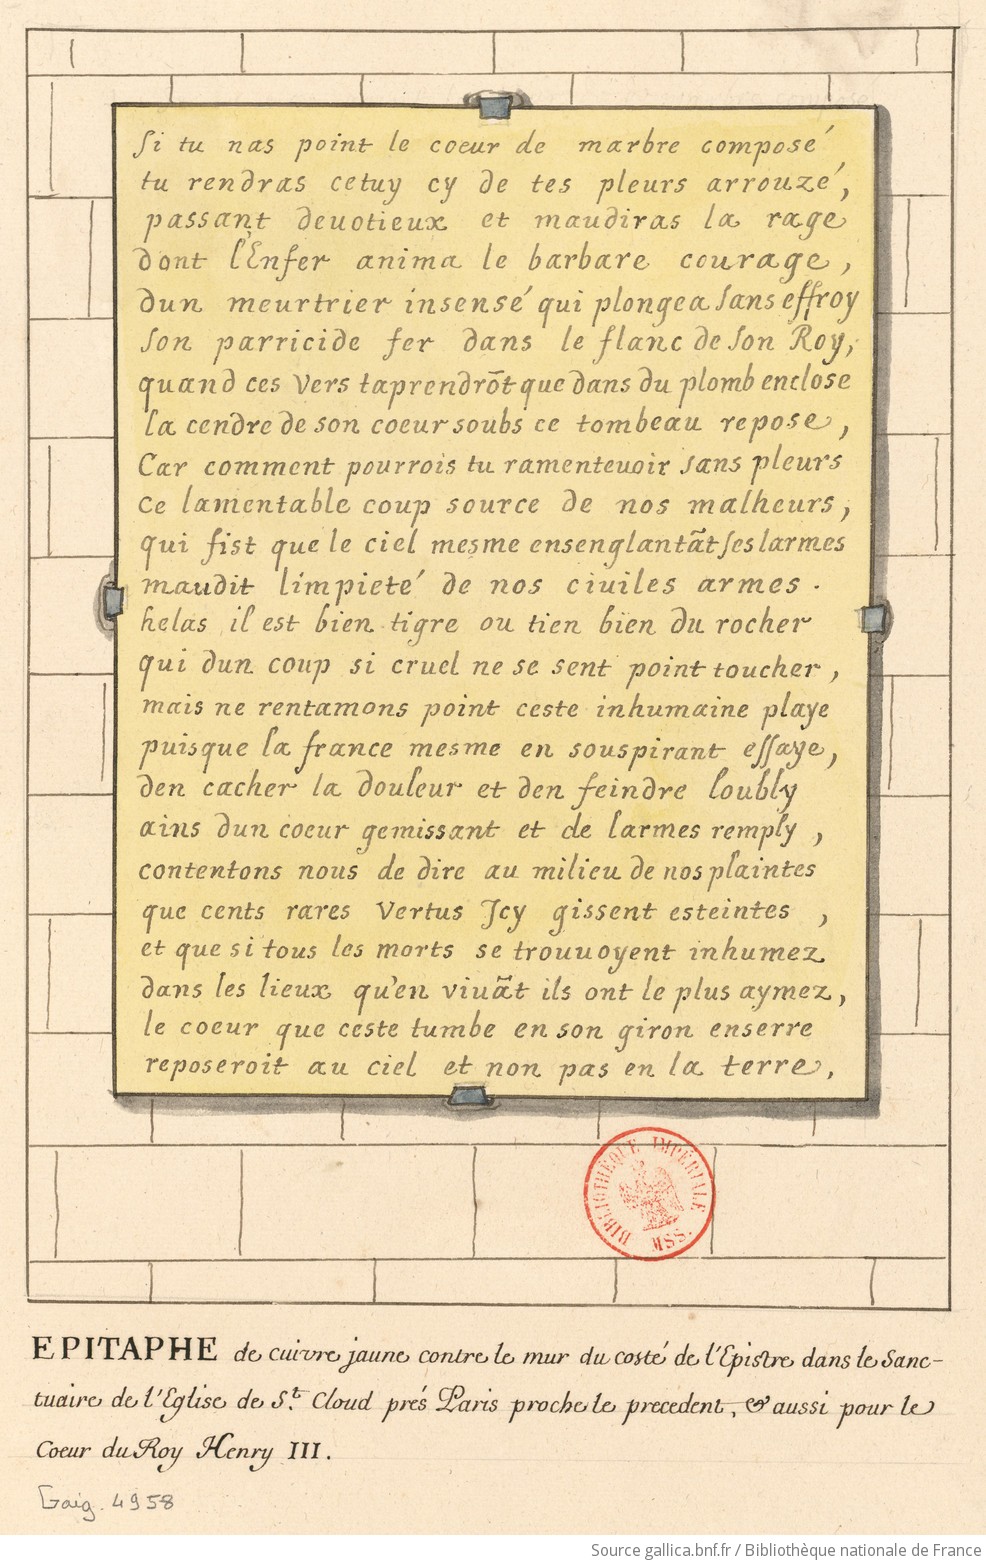 Si tu nas point le coeur de marbre composé
tu rendras cetuy cy de tes pleurs arrouzé,
passant devotieux et maudiras la rage
dont l'Enfer anima le barbare courage,
dun meurtrier insensé qui plongea sans effroy
son parricide fer dans le flanc de son Roy,
quand ces vers taprendrōt que dans du plomb enclose
la cendre de son coeur soubs ce tombeau repose,
Car comment pourrois tu ramentevoir sans pleurs
ce lamentable coup source de nos malheurs,
qui fist que le ciel mesme ensenglantāt ses larmes
maudit limpieté de nos civiles armes.
helas il est bien tigre ou tien bien du rocher
qui dun coup si cruel ne se sent point toucher,
mais ne rentamons point ceste inhumaine playe
puisque la france mesme en souspirant essaye,
den cacher la douleur et den feindre loubly
ains dun coeur gemissant et de larmes remply,
contentons nous de dire au milieu de nos plaintes
que cents rares vertus Icy gissent esteintes,
et que si tous les morts se trouuoyent inhumez
dans les lieux qu'en viuāt ils ont le plus aymez,
le coeur que ceste tumbe en son giron enserre
reposeroit au ciel et non pas en la terre,
BIBLIOTHÈQUE IMPÉRIALE MSS.
EPITAPHE de cuivre jaune contre le mur du costé de l'Epistre dans le Sanc-
tuaire de l'Eglise de St. Cloud prés Paris proche le precedent, & aussi pour le
Coeur du Roy Henry III.
Gaig. 4958
Source gallica.bnf.fr / Bibliothèque nationale de France